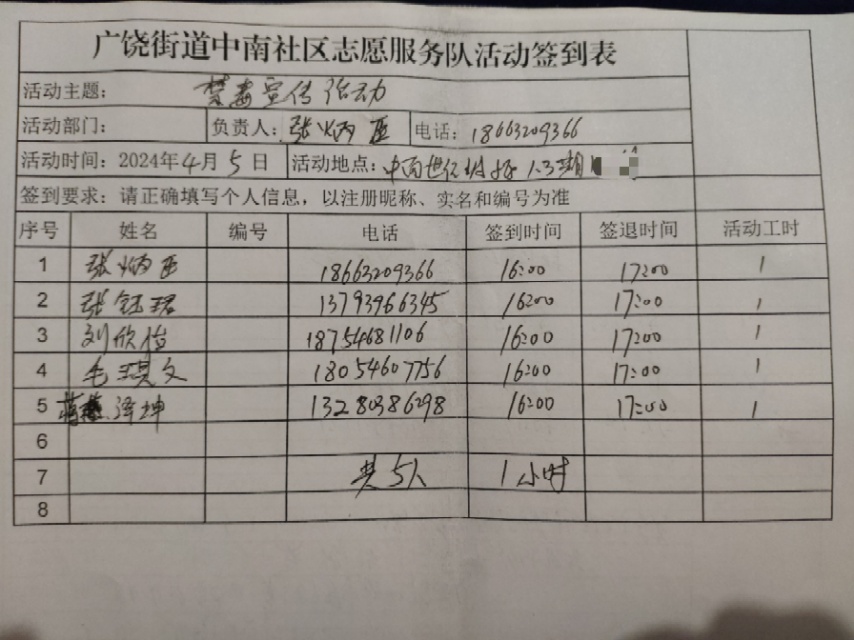 广饶街道中南社区志愿服务队活动签到表
活动主题： 禁毒宣传活动
活动部门： 负责人：张炳臣 电话：18663209366
活动时间：2024年4月5日 活动地点：中南世纪城
签到要求：请正确填写个人信息，以注册昵称、实名和编号为准
序号 姓名 编号 电话 签到时间 签退时间 活动工时
1 张炳臣 18663209366 16:00 17:00 1
2 张钰珺 13793966345 16:00 17:00 1
3 刘欣怡 18754681106 16:00 17:00 1
4 毛琪文 18054607756 16:00 17:00 1
5 泽坤 13280386298 16:00 17:00 1
6
7 共5人 1小时
8